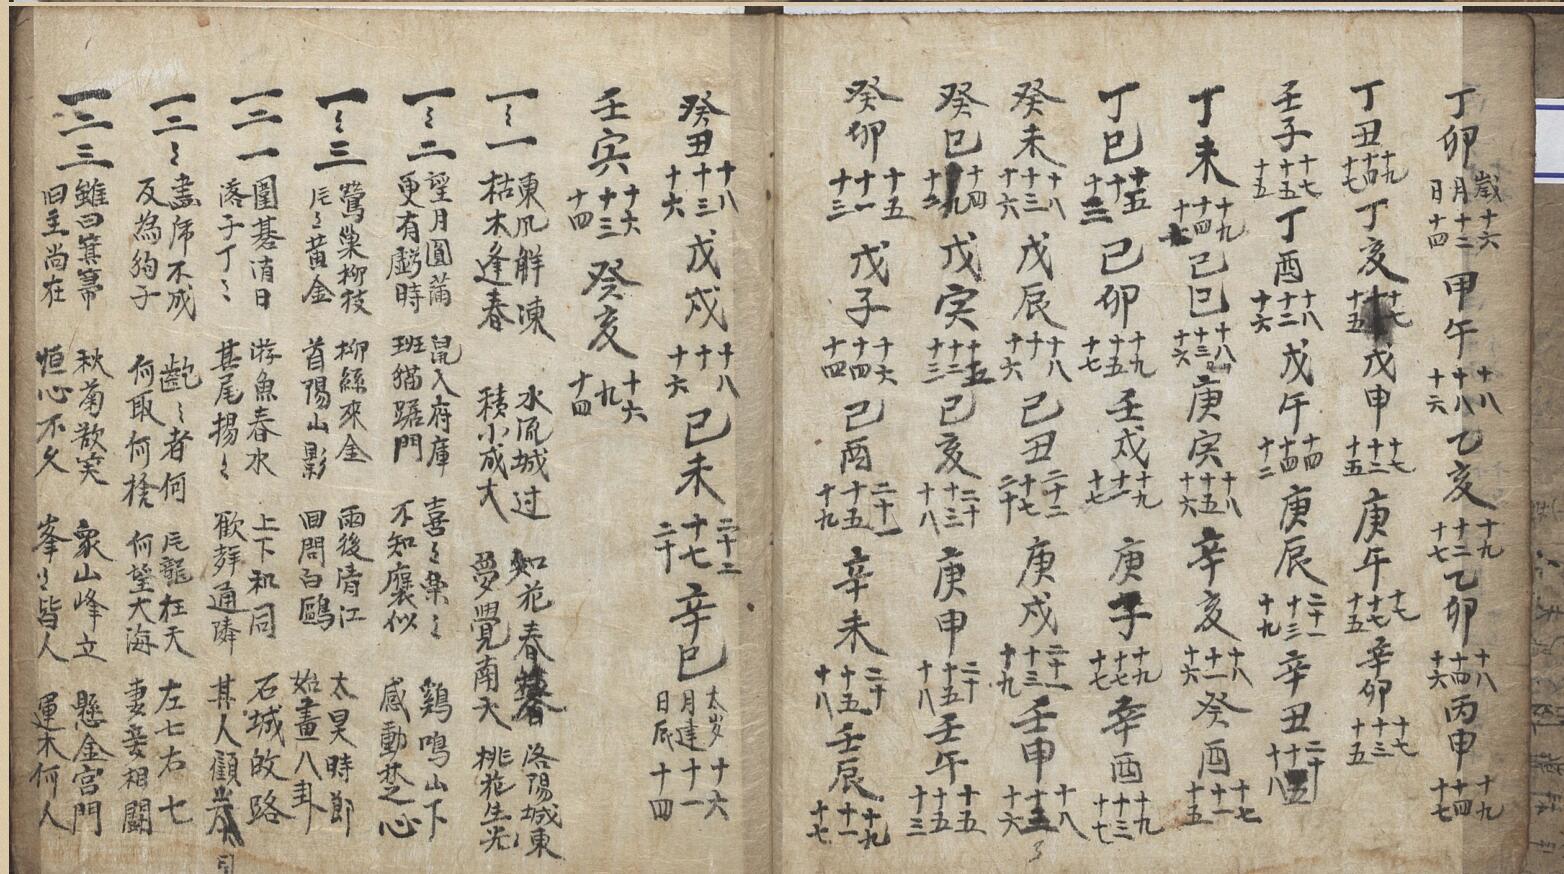 丁卯 歲十六 月十二 日十四 甲午 十八 十八 十六 乙亥 十九 十二 十七 乙卯 十八 十四 十六 丙申 十九 十四 十七
丁丑 十九 十四 十七 丁亥 十七 十五 戊申 十七 十二 十五 庚午 十七 十七 十五 辛卯 十七 十三 十五
壬子 十七 十五 十五 丁酉 十八 十二 十六 戊午 十四 十四 十二 庚辰 二十一 十三 十九 辛丑 二十 十八
丁未 十九 十四 十七 己巳 十八 十三 十六 庚寅 十八 十五 十六 辛亥 十八 十一 十六 癸酉 十七 十一 十五
丁巳 十五 十三 己卯 十九 十五 十七 壬戌 十九 十一 十七 庚子 十九 十七 十七 辛酉 十九 十三 十七
癸未 十八 十三 十六 戊辰 十八 十 十六 己丑 二十二 十七 二十 庚戌 二十一 十三 十九 壬申 十八 十五 十六
癸巳 十四 九 十二 戊寅 十五 十三 十三 己亥 二十 十三 十八 庚申 二十 十五 十八 壬午 十五 十五 十三
癸卯 十五 十一 十三 戊子 十六 十四 十四 己酉 二十一 十五 十九 辛未 二十 十五 十八 壬辰 十九 十一 十七
癸丑 十八 十三 十六 戊戌 十八 十一 十六 己未 二十二 十七 二十 辛巳 太岁十六 月建十一 日辰十四
壬寅 十六 十三 十四 癸亥 十六 九 十四
一〻一 東風解凍 枯木逢春 水流城过 積小成大 如花春暮 夢覺南天 洛陽城東 桃花生光
一〻二 望月圓滿 更有虧時 鼠入府庫 班猫踞門 喜〻樂〻 不知襄似 鷄鳴山下 感動焚心
一〻三 鶯巢柳枝 片〻黄金 柳絲來金 首陽山影 雨後淸江 回問白鷗 太昊時節 始畫八卦
一二一 圍碁淸日 落子丁〻 游魚春水 其尾揚〻 上下和同 歡辞通隣 石城故路 其人顧
一二〻 畵虎不成 反為狗子 齪〻者何 何取何捨 片龍在天 何望大海 左七右七 妻妾相鬪
一二三 雖曰箕箒 旧主尚在 秋菊散笑 恒心不久 衆山峰立 峯〻皆人 懸金宮門 運木何人